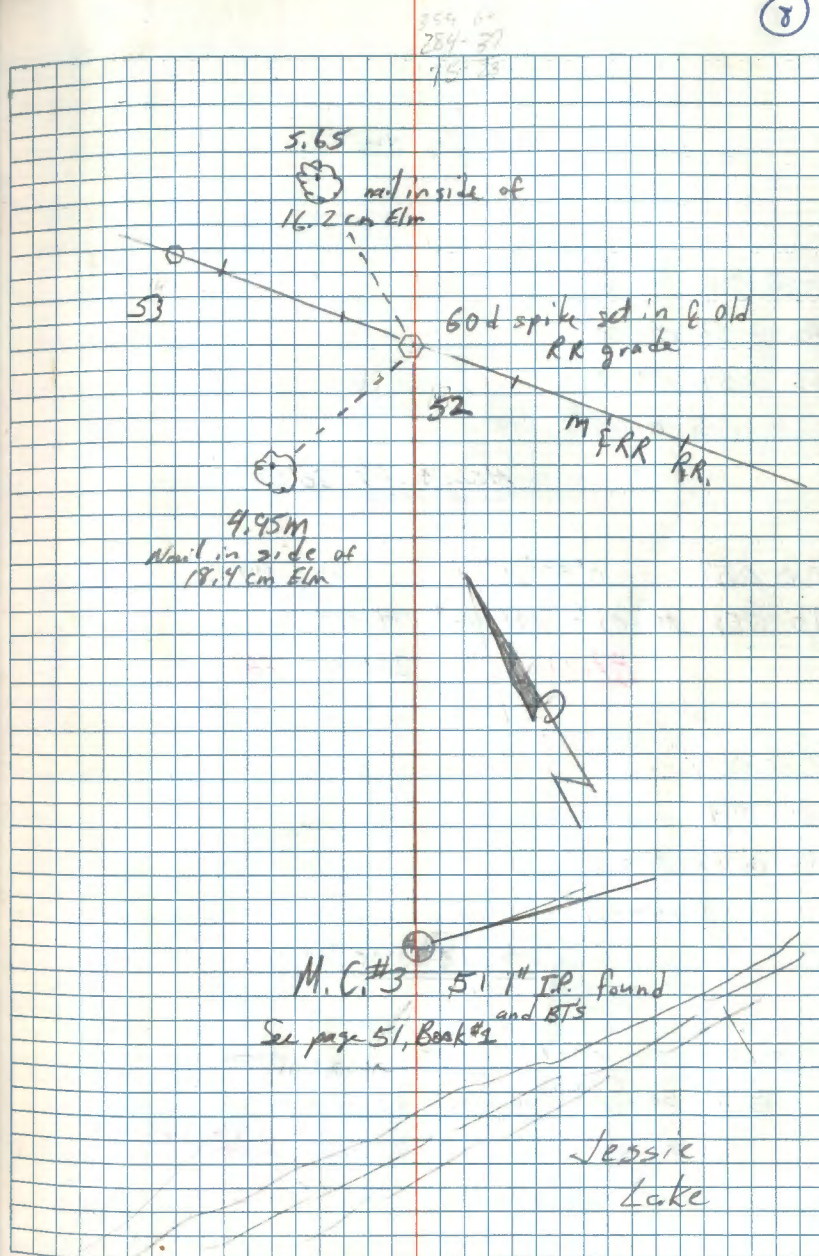 8
284-37
5.65
nail in side of
16.2 cm Elm
53
60d spike set in ℄ old
RR grade
52
m ℄ RR
RR.
4.95m
Nail in side of
18.4 cm Elm
M.C.#3 51 1" I.P. found
and BTs
See page 51, Book #1
Jessie
Lake